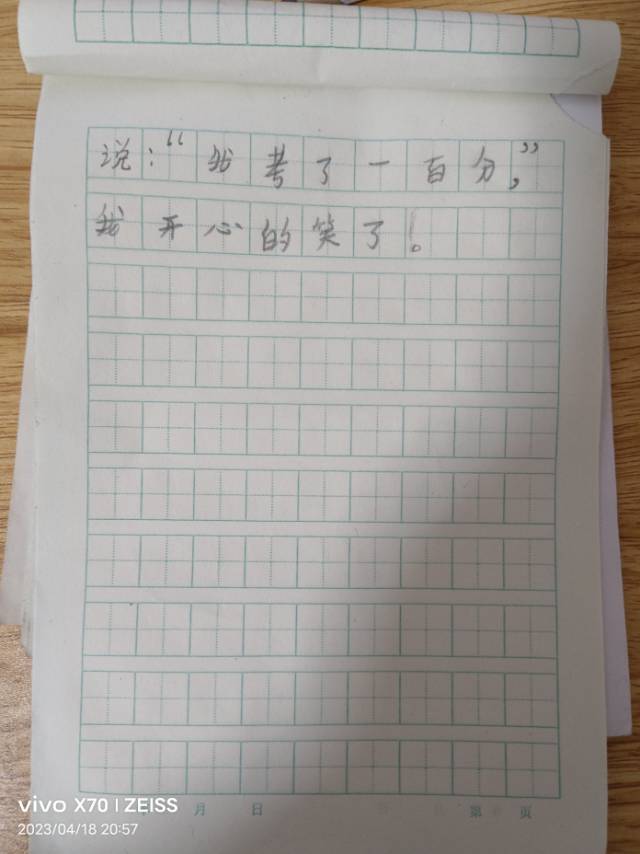 说：“我考了一百分，”
我开心的笑了！
月 日 第 页
vivo X70 | ZEISS
2023/04/18 20:57